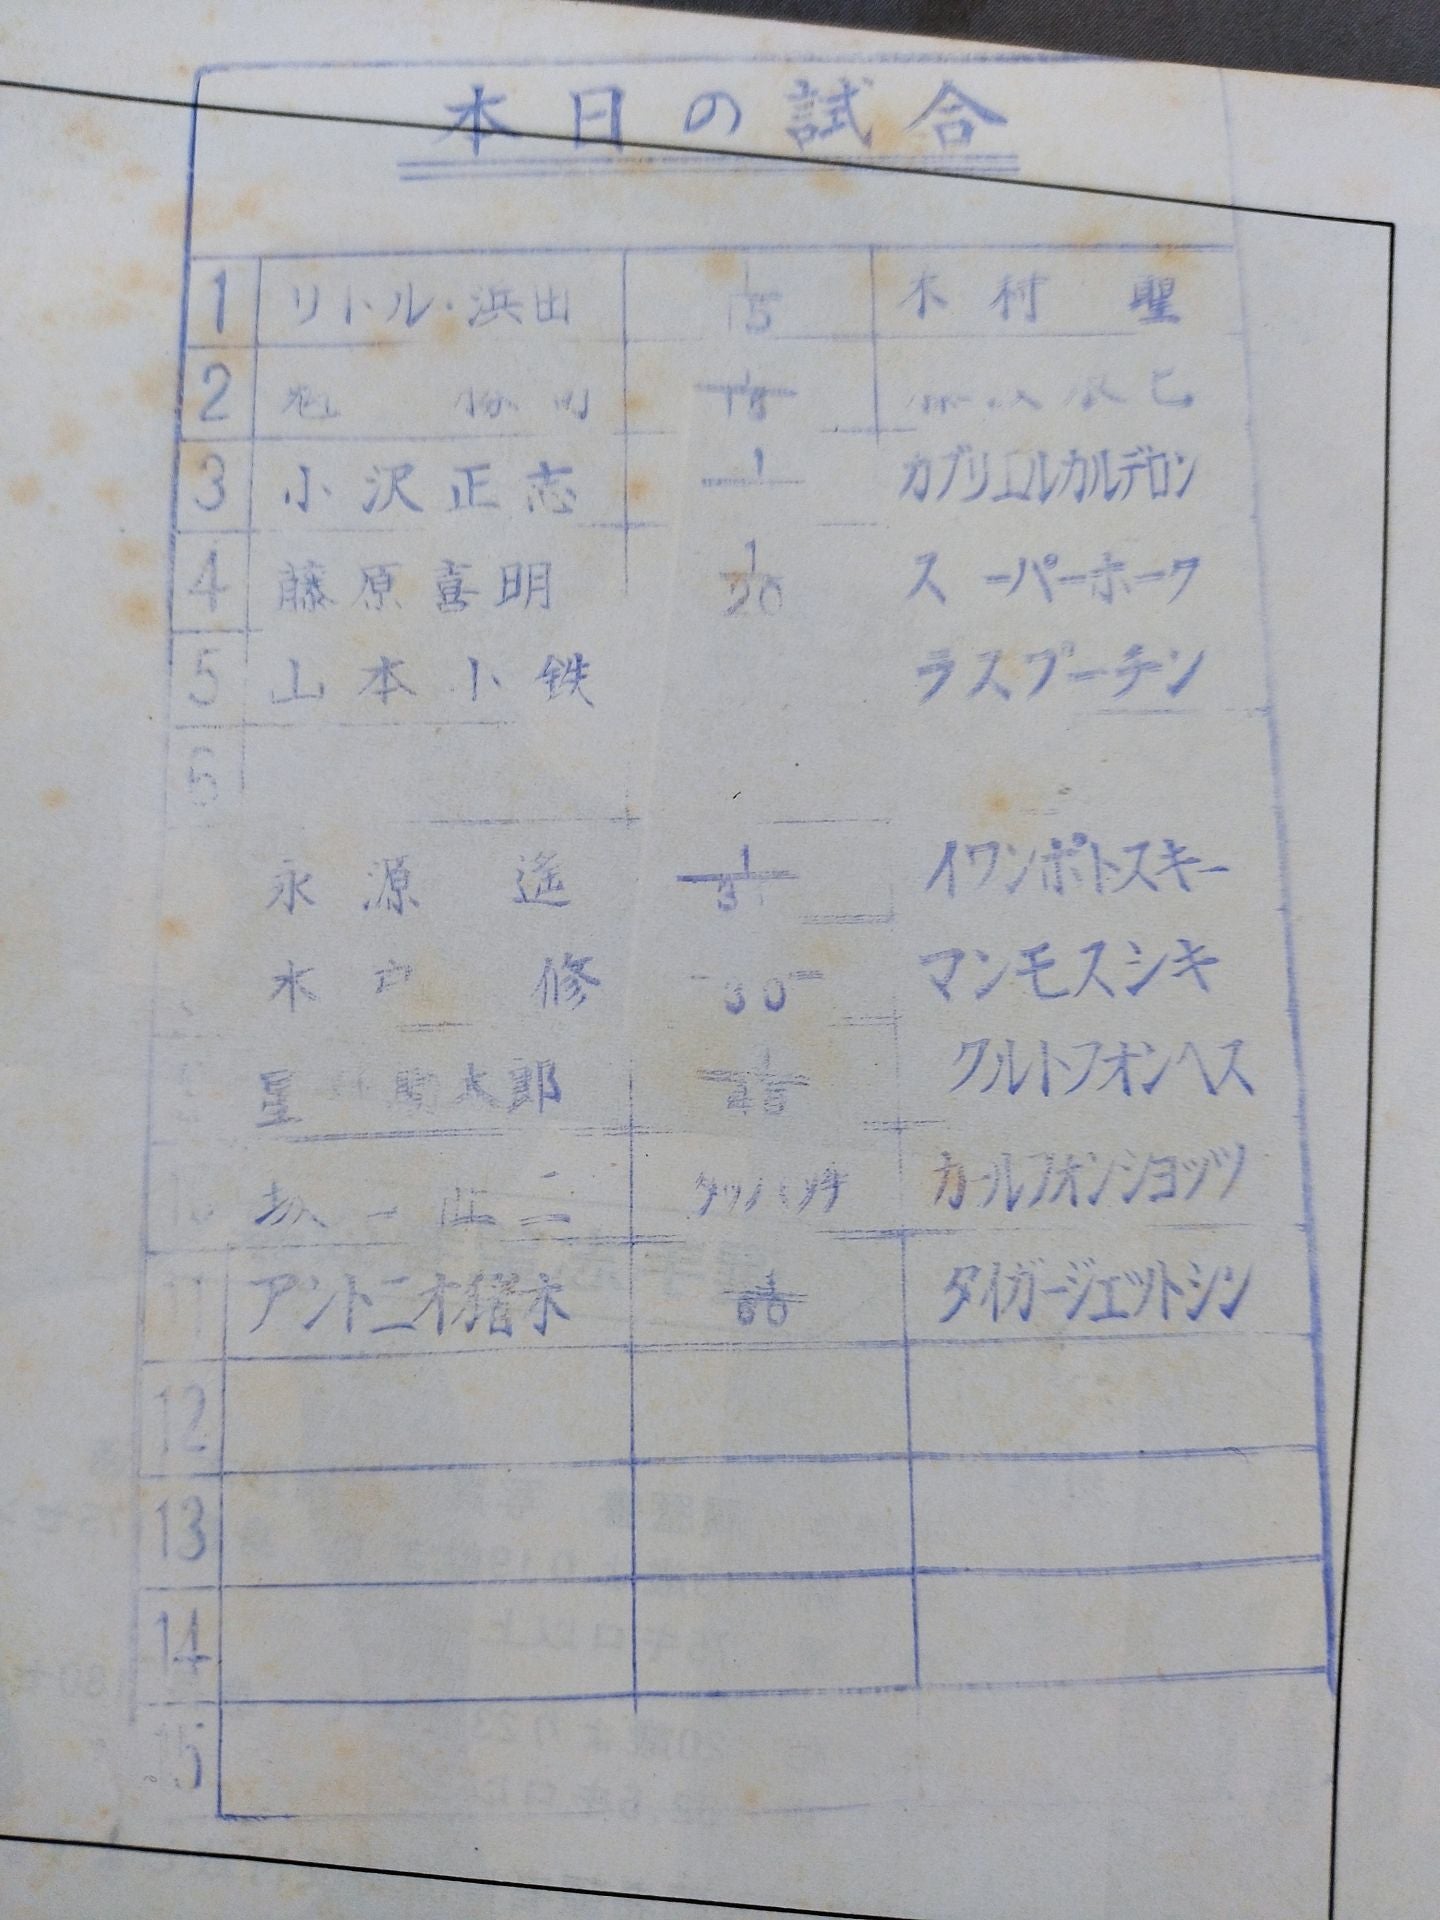 本日の試合
1 リトル・浜田 1/15 木村 聖
2 1/15
3 小沢正志 1 カブリエルカルデロン
4 藤原喜明 1/20 スーパーホーク
5 山本小鉄 ラスプーチン
6
永源 遙 1/3 イワンポトスキー
木戸 修 30 マンモスシキ
星 助太郎 1/45 クルトフオンヘス
10 坂口征二 タッハンチ カールフオンショッツ
11 アントニオ猪木 1/60 タイガージェットシン
12
13
14
15